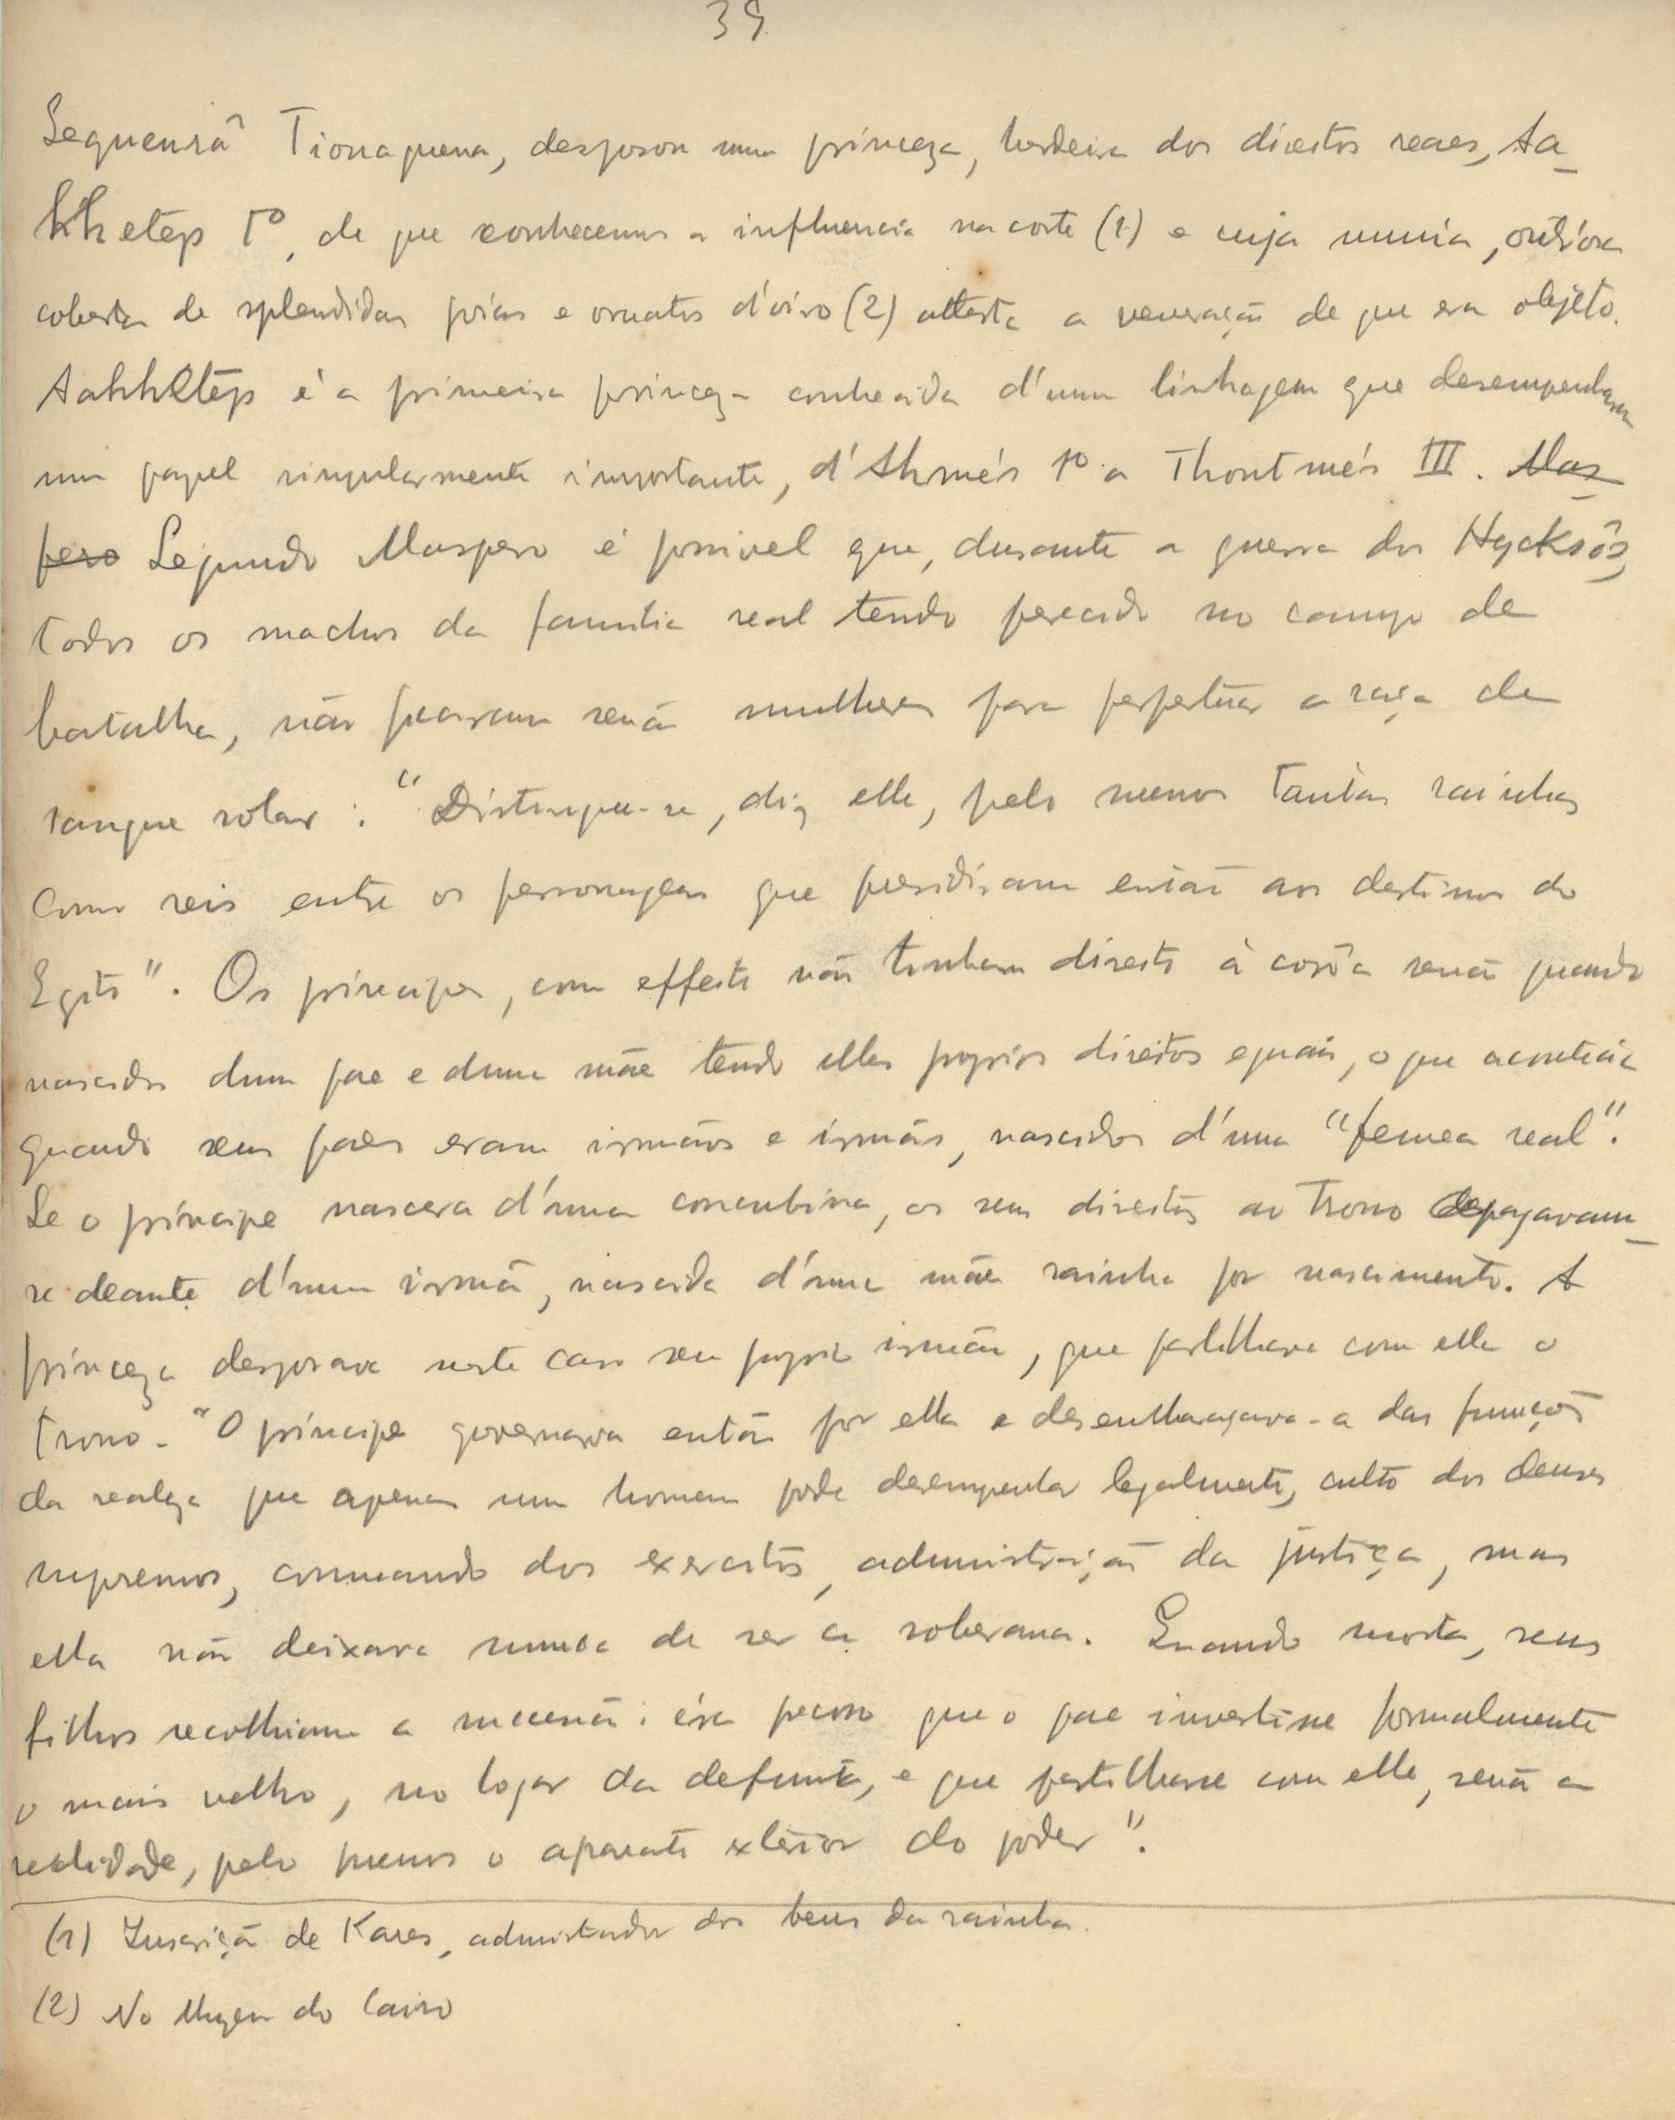 39
Sequenrâ Tiouaquena, desposou uma princeza, herdeira dos direitos reaes, Aa-
hhetep 1º, de que conhecemos a influencia na corte (1) e cuja mumia, outróra
coberta de splendidas joias e ornatos d'oiro (2) attesta a veneração de que era objéto.
Aahhetep é a primeira princeza conhecida d'uma linhagem que desempenharam
um papel singularmente importante, d'Ahmés 1º a Thoutmés III. Mas-
pero Segundo Maspero é possivel que, durante a guerra dos Hycksôs,
todos os machos da familia real tendo perecido no campo de
batalha, não ficaram senão mulheres para perpetuar a raça de
sangue solar: "Distingue-se, diz elle, pelo menos tantas rainhas
como reis entre os personagens que presidiram então aos destinos do
Egito". Os principes, com effeito não tinham direito à corôa senão quando
nascidos dum pae e duma mãe tendo elles proprios direitos eguais, o que acontecia
quando seus paes eram irmãos e irmãs, nascidos d'uma "femea real".
Se o principe nascera d'uma concubina, os seus direitos ao trono apagavam-
se deante d'uma irmã, nascida d'uma mãe rainha por nascimento. A
princeza desposava neste caso seu proprio irmão, que partilhava com ella o
trono. "O principe governava então por ella e desembaraçava-a das funções
da realeza que apenas um homem pode desempenhar legalmente, culto dos deuses
supremos, commando dos exercitos, administração da justiça, mas
ella não deixava nunca de ser a soberana. Quando morta, seus
filhos recolhiam a sucessão: éra preciso que o pae investisse formalmente
o mais velho, no logar da defunta, e que partilhasse com elle, senão a
realidade, pelo menos o aparato exterior do poder".
(1) Inscrição de Kares, admistrador dos bens da rainha.
(2) No Muzeu do Cairo